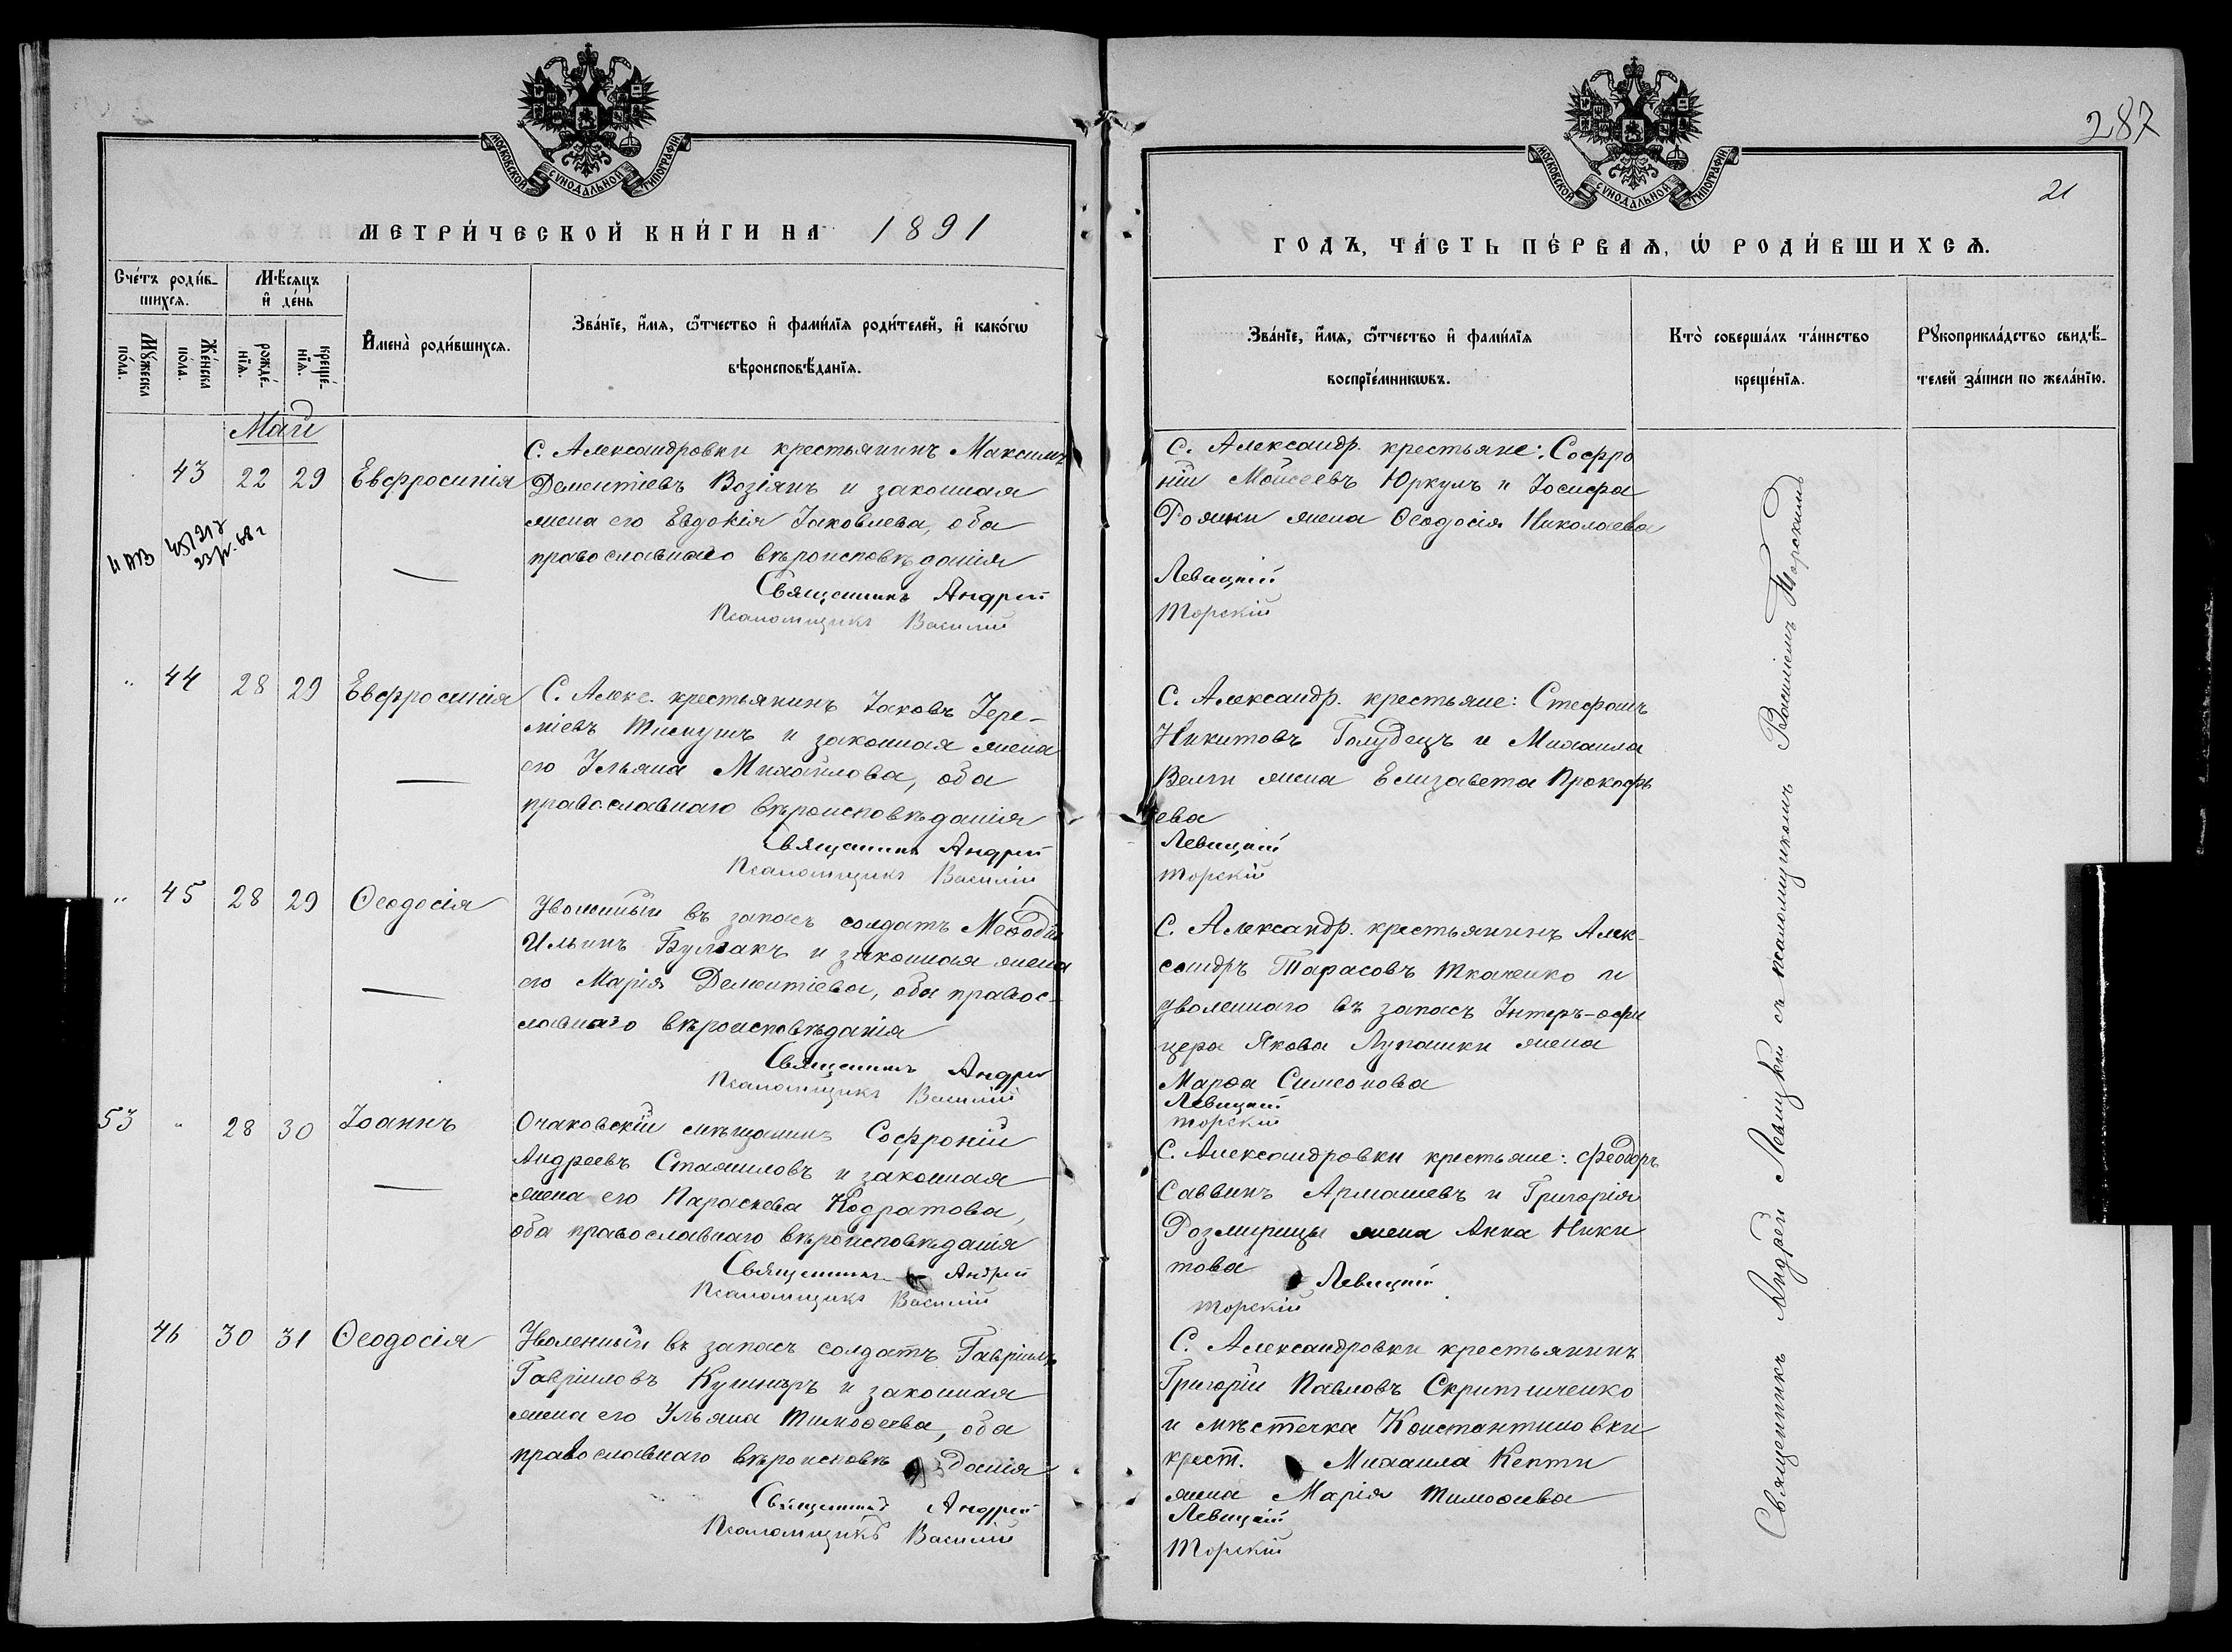 МОСКОВСКОЙ СУНОДАЛЬНОЙ ТИПОГРАФІИ
МЕТРИ́ЧЕСКОЙ КНИ́ГИ НА 1891
Сче́тъ роди́в-
шихся.
Мѣ́сяцъ
и҆ де́нь
И҆мена̀ роди́вшихся.
Зва́нїе, и҆́мя, ѻ҆́тчество и҆ фами́лїя роди́телей, и҆ како́гѡ
вѣроисповѣ́данїя.
Му́жеска
по́ла.
Же́нска
по́ла.
рожде́-
нїя.
креще́-
нїя.
Май
43 22 29 Евфросинія
С. Александровки крестьянинъ Максимъ
Дементіевъ Возіянъ и законная
жена его Евдокія Іаковлева, оба
православнаго вѣроисповѣданія
Священникъ Андрей
Псаломщикъ Василій
„ 44 28 29 Евфросинія
С. Алекс. крестьянинъ Іаковъ Іере-
міевъ и законная жена
его Іульяна Михайлова, оба
православнаго вѣроисповѣданія
Священникъ Андрей
Псаломщикъ Василій
„ 45 28 29 Ѳеодосія
Уволенный въ запасъ солдатъ Меѳодій
Ильинъ Булгакъ и законная жена
его Марія Дементіева, оба правос-
лавнаго вѣроисповѣданія
Священникъ Андрей
Псаломщикъ Василій
53 „ 28 30 Іоаннъ
Очаковскій мѣщанинъ Софроній
Андреевъ и законная
жена его Параскева Кодратова,
оба православнаго вѣроисповѣданія
Священникъ Андрей
Псаломщикъ Василій
46 30 31 Ѳеодосія
Уволенный въ запасъ солдатъ Гавріилъ
Гавріиловъ Кушниръ и законная
жена его Ульяна Тимоѳеева, оба
православнаго вѣроисповѣданія
Священникъ Андрей
Псаломщикъ Василій
287
21
МОСКОВСКОЙ СУНОДАЛЬНОЙ ТИПОГРАФІИ
ГОДЪ, ЧА́СТЬ ПЕ́РВАЯ, Ѡ҆ РОДИ́ВШИХСЯ.
Зва́нїе, и҆́мя, ѻ҆́тчество и҆ фами́лїя
воспрїе́мникѡвъ.
Кто̀ соверша́лъ та́инство
креще́нїя.
Рꙋкоприкла́дство свидѣ́-
телей за́писи по жела́нїю.
С. Александр. крестьяне: Софро
ній Мойсеевъ Юркулъ и Іосифа
жена Ѳеодосія Николаева
Левицкій
Торскій
С. Александр. крестьяне: Стефанъ
Никитовъ Голубецъ и Михаила
Велги жена Елизавета Прокофь
ева
Левицкій
Торскій
С. Александр. крестьянинъ Алек-
сандръ Тарасовъ Ткаченко и
уволеннаго въ запасъ Унтеръ-офи
цера Якова Лупашки жена
Марѳа Симеонова
Левицкій
Торскій
С. Александровки крестьяне: Феодоръ
Саввинъ Армашевъ и Григорія
Дозмирицы жена Анна Ники
това
Левицкій
Торскій
С. Александровки крестьянинъ
Григорій Павловъ Скрипниченко
и мѣстечка Константиновки
крест. Михаила Кепти
жена Марія Тимоѳеева
Левицкій
Торскій
Священникъ Андрей Левицкій съ псаломщикомъ Василіемъ Торскимъ